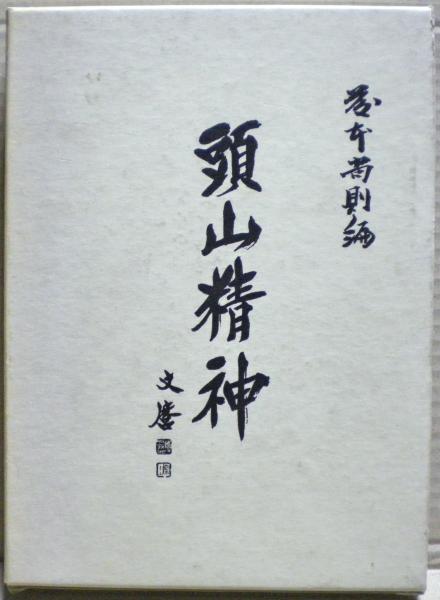 藤本尚則編
頭山精神
文麿